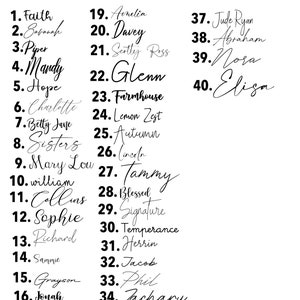 1. Faith
2. Savanah
3. Piper
4. Mandy
5. Hope
6. Charlotte
7. Betty Jane
8. Sisters
9. Mary Lou
10. william
11. Collins
12. Sophie
13. Richard
14. Sammie
15. Grayson
16. Jonah
19. Amelia
20. Davey
21. Scotty Ross
22. Glenn
23. Farmhouse
24. Lemon Zest
25. Autumn
26. Lincoln
27. Tammy
28. Blessed
29. Signature
30. Temperance
31. Herrin
32. Jacob
33. Phil
34. Zachary
37. Jude Ryan
38. Abraham
39. Nora
40. Elisa